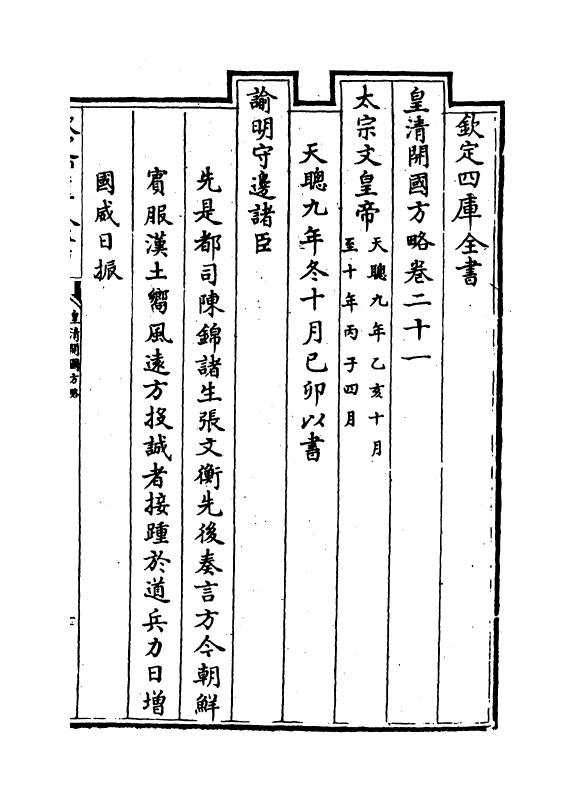 欽定四庫全書
皇清開國方略卷二十一
太宗文皇帝天聰九年乙亥十月
至十年丙子四月
天聰九年冬十月己卯以書
諭明守邊諸臣
先是都司陳錦諸生張文衡先後奏言方今朝鮮
賓服漢土嚮風遠方投誠者接踵於道兵力日增
國威日振
皇清開國方略